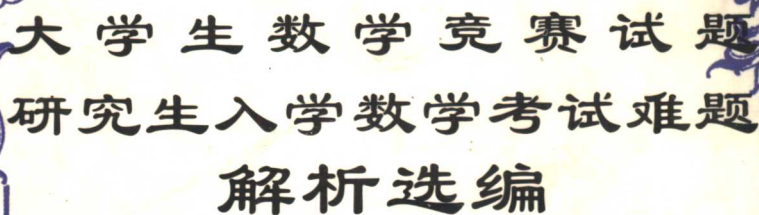 大学生数学竞赛试题
研究生入学数学考试难题
解析选编